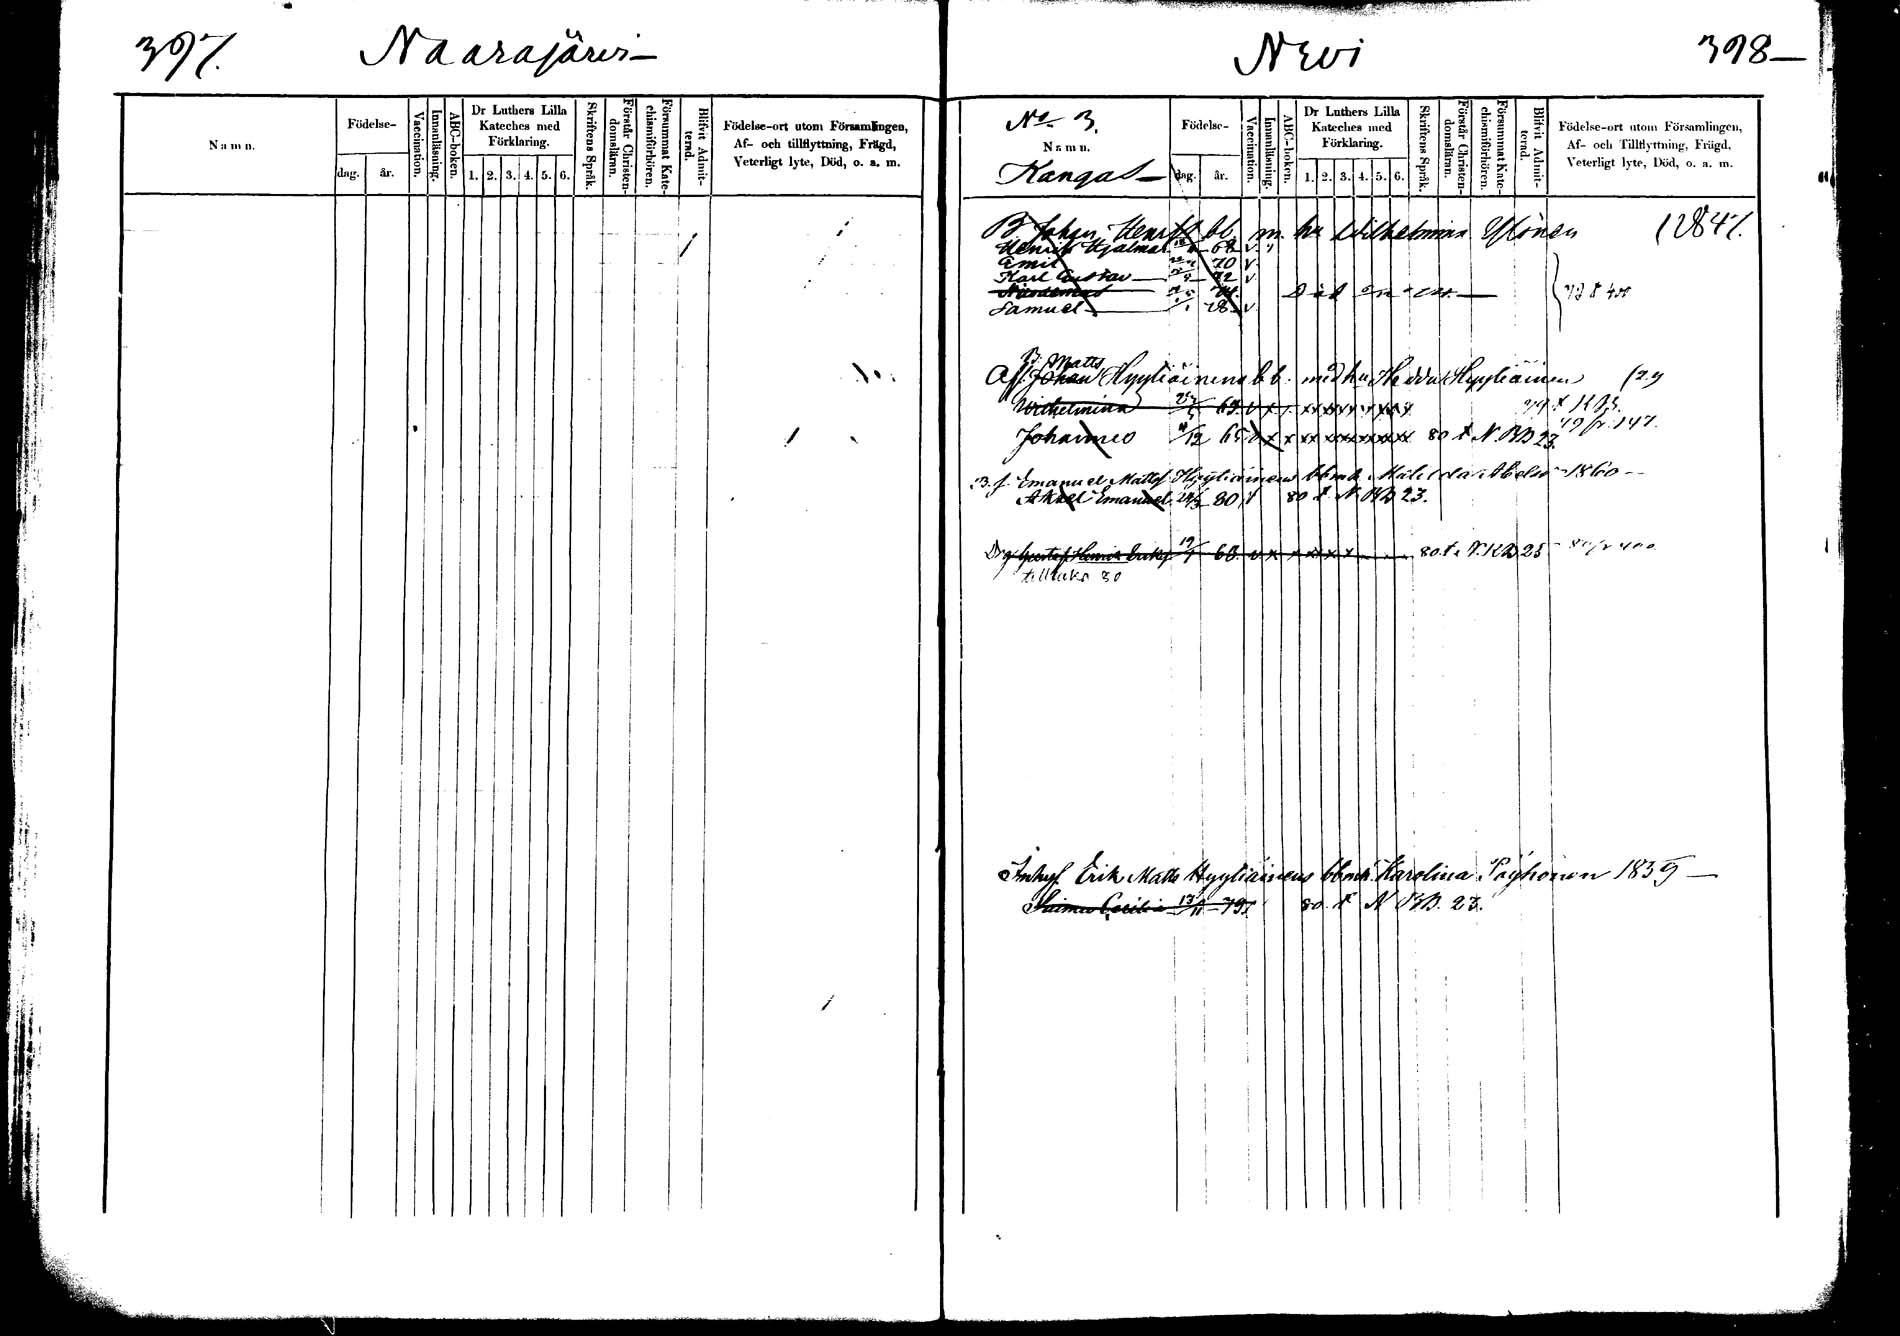 397.
Naarajärvi
Namn.
Födelse-
dag.
år.
Vaccination.
Innanläsning.
ABC-boken.
Dr Luthers Lilla Kateches med Förklaring.
1. 2. 3. 4. 5. 6.
Skriftens Språk.
Förstår Christendomsläran.
Försummat Katechismiförhören.
Blifvit Admitterad.
Födelse-ort utom Församlingen,
Af- och tillflyttning, Frägd,
Veterligt lyte, Död, o. a. m.
Nevi
398
No 3.
Namn.
Kangas
Födelse-
dag.
år.
Vaccination.
Innanläsning.
ABC-boken.
Dr Luthers Lilla Kateches med Förklaring.
1. 2. 3. 4. 5. 6.
Skriftens Språk.
Förstår Christendomsläran.
Försummat Katechismiförhören.
Blifvit Admitterad.
Födelse-ort utom Församlingen,
Af- och Tillflyttning, Frägd,
Veterligt lyte, Död, o. a. m.
B Johan bb m. hu Wilhelmina Ylönen (1847.
Henrik Hjalmar 68 v
Emil 70 v
Karl Gustav 72 v
Död
Samuel 78 v
B. Matts
Johan Hyytiäinens bb. med hu Hedda Hyytiäinen (29
Wilhelmina
Johannes 11/12 65 v x x xx xxxxxxxx 80 f N. BB 23. 79 fr. 147.
B. f. Emanuel Mattsf Hyytiäinens bb mh Matilda 1860
Axel Emanuel 80 80 f N BB 23.
Gustaf Henrik Eriksf 19/1 63 v x 80 f. N. KB 23
80
Inhys Erik Matts Hyytiäinens bb mh Karolina Pöyhönen 1859
Cecilia 13/11 79. 80. f N BB. 23.